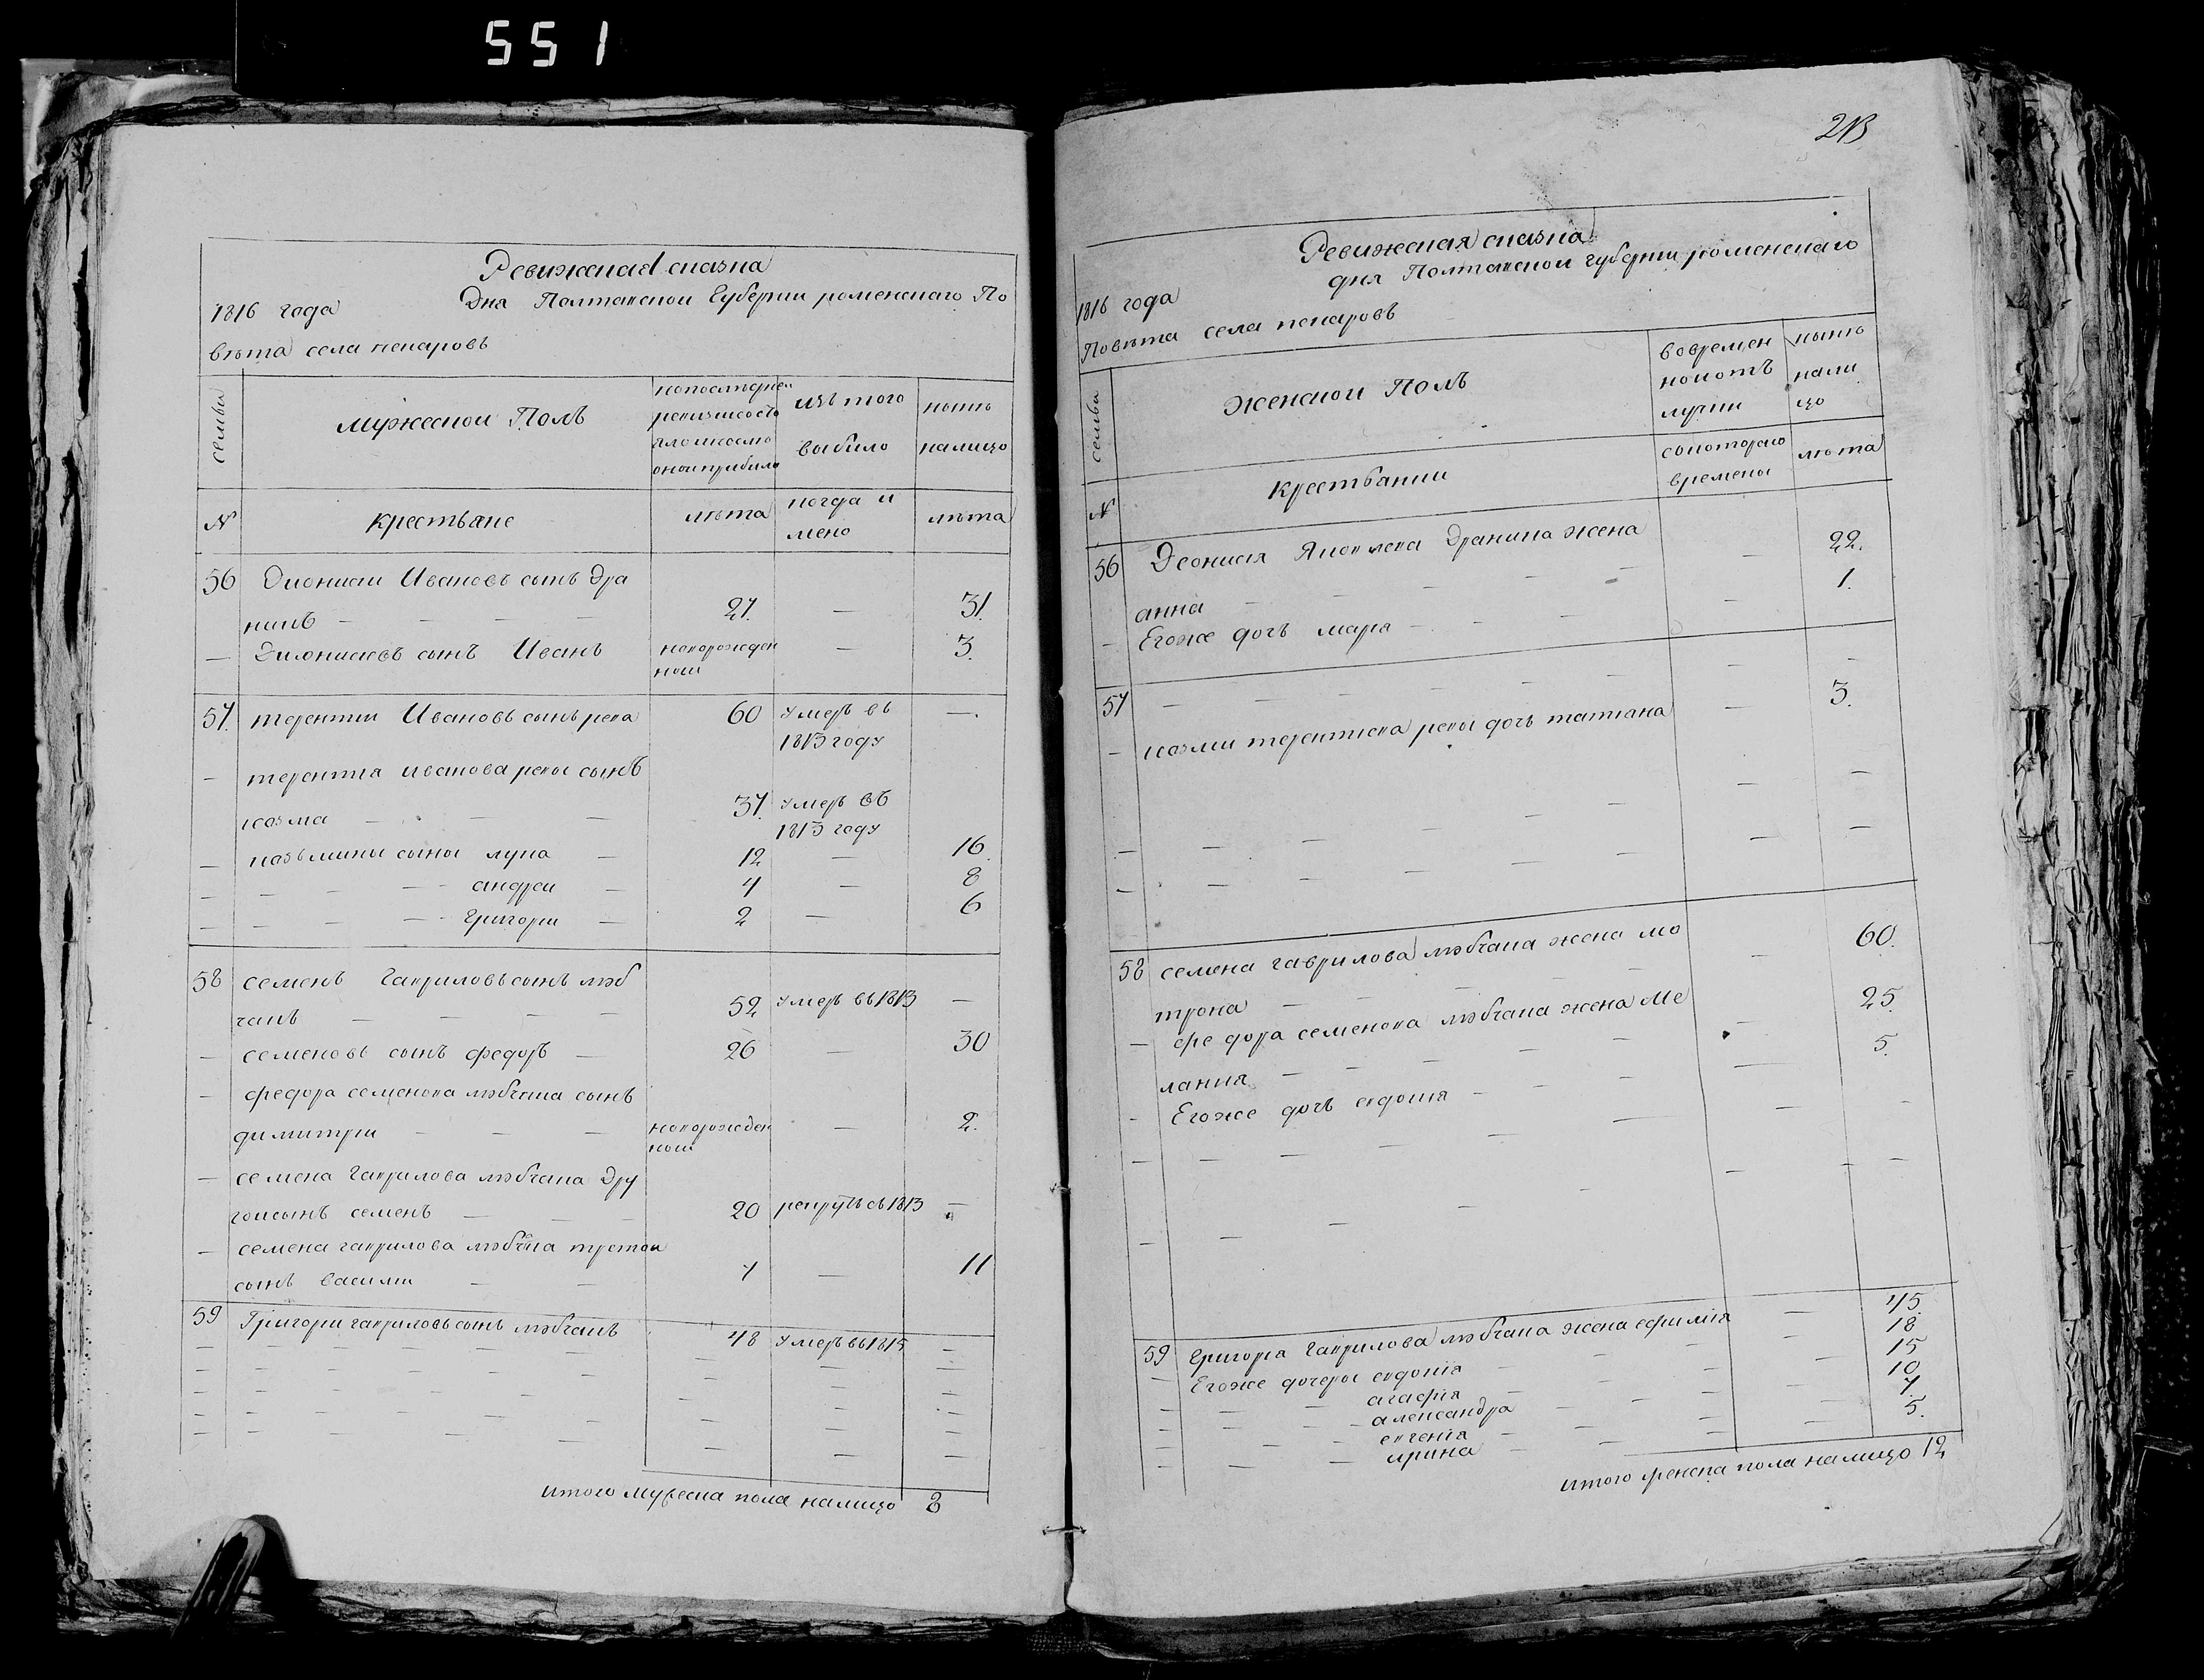 551
Ревижская сказка
1816 года Дня Полтавской Губернии роменского По
вѣта села пекаровъ
семьи
мужеской Полъ
по последней
ревизии состо
яло и после
оной прибыло
изъ того
выбыло
нынѣ
налицо
№
крестьяне
лѣта
когда и
мено
лѣта
56 Дионисий Ивановъ сынъ Дра
никъ — — — — 27. — 31.
— Дионисиевъ сынъ Иванъ новорожден
ной — 3.
57. терентий Ивановъ сынъ репа 60 умеръ въ
1813 году —.
- терентия иванова репы сынъ
козма — — — 37. умеръ въ
1813 году
— козьмины сыны лука — 12 — 16.
— — — — андрей — 4 — 8
— — — — григорий — 2 — 6
58 семенъ гавриловъ сынъ любъ
чанъ — — — — 52 умеръ въ 1813 —
— семеновъ сынъ федоръ — 26 — 30
— федора семенова любчана сынъ
димитрий — — — новорожден
ной — 2.
— семена гаврилова любчана Дру
гой сынъ семенъ — — — 20 рекрутъ въ 1813 —
— семена гаврилова любчана третой
сынъ василий — — 7 — 11
59 Григорий гавриловъ сынъ любчанъ 48 умеръ въ 1815 —
итого мужеска пола налицо 8
213
Ревижская сказка
1816 года дня Полтавской губернии роменскаго
Повѣта села пекаровъ
семьи
Женской Полъ
во времен
ной отъ
лучки
нынѣ
нали
цо
№
крестьянки
с которого
времены
лѣта
56 Деонисия Яковлева Драника жена
анна — — — — 22.
- Егоже дочь мария — — — 1.
57 — — — — — — —
— козмы терентиева репы дочь татиана — 3.
58 семена гаврилова любчана жена мо
трона — — — — 60.
— федора семенова любчана жена Ме
лания — — — — 25.
- Егоже дочь евдокия — — — 5.
59 Григория гаврилова любчана жена ефимия — 45.
— Егоже дочеры евдокія — — 18
— — — агафія — — 15
— — — александра — — 10
— — — евгенія — — 7.
— — — ирина — — 5.
итого женска пола налицо 12